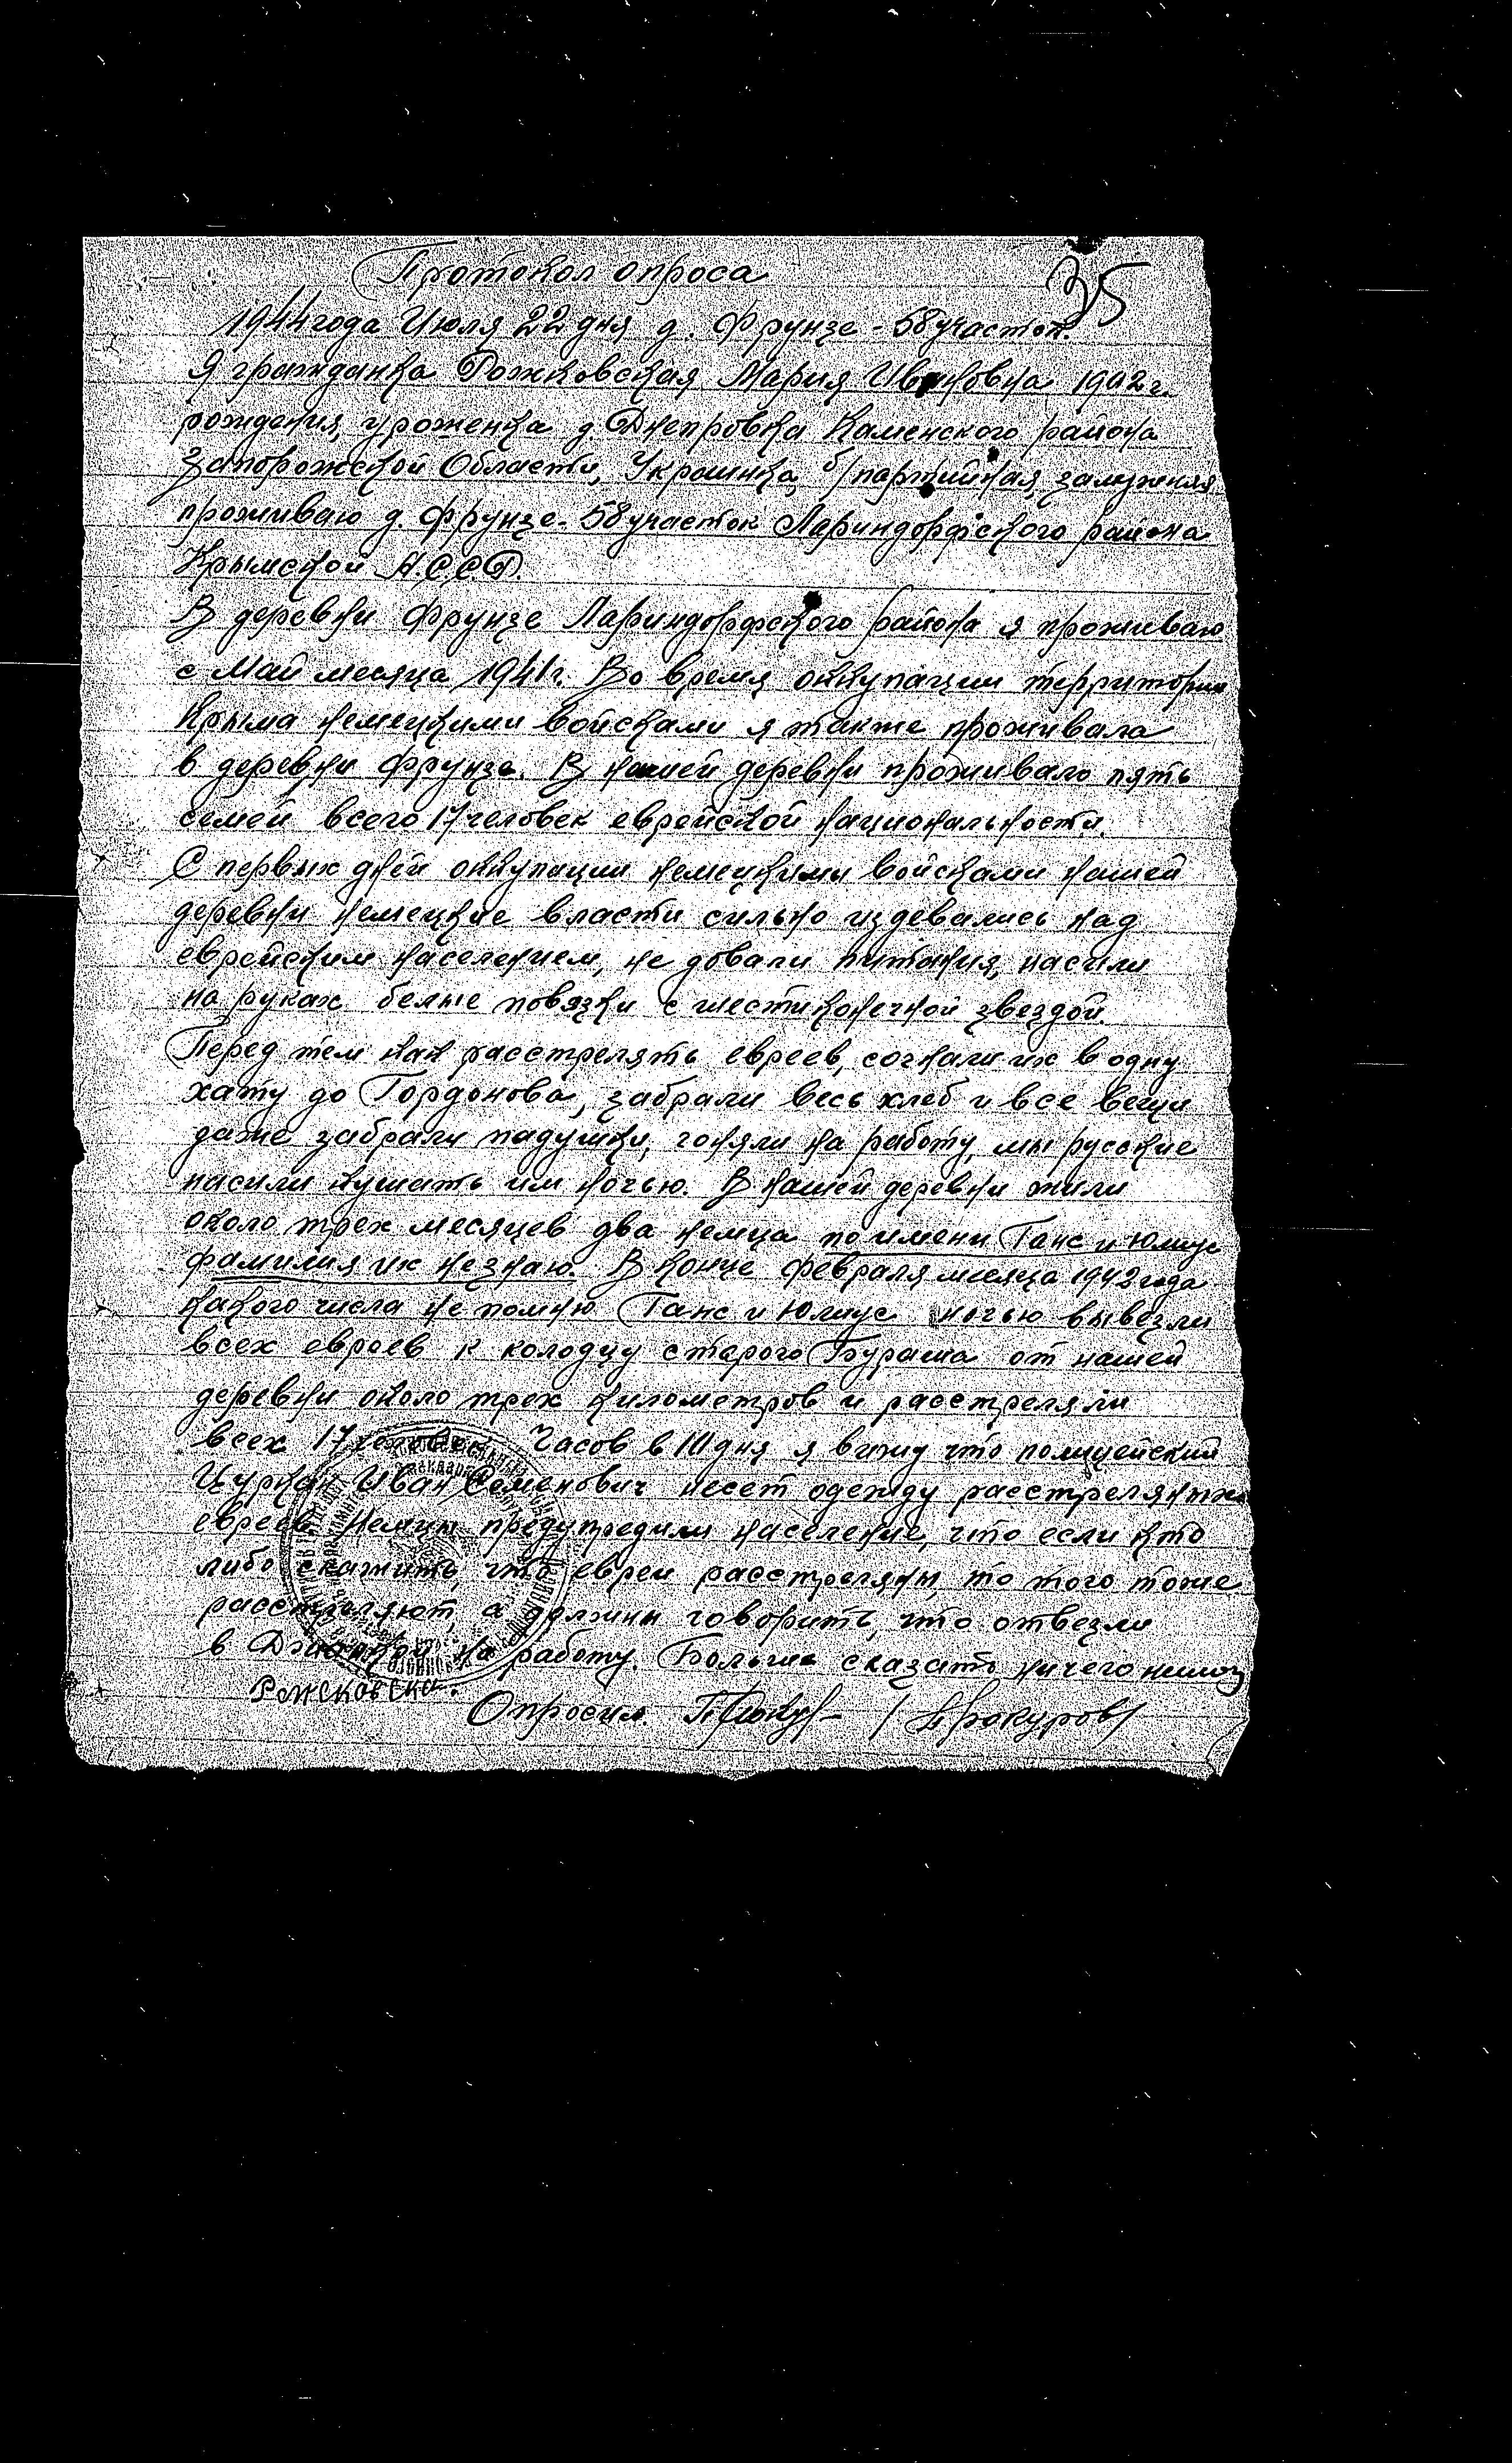 Протокол опроса
35
1944 года Июля 22 дня д. Фрунзе - 58 участок.
Я гражданка Рожковская Мария Ивановна 1902 г.
рождения, уроженка д. Днепровка Каменского района
Запорожской Области, Украинка, б/партийная, замужняя,
проживаю д. Фрунзе - 58 участок Лариндорфского района
Крымской А.С.С.Р.
В деревни Фрунзе Лариндорфского района я проживаю
с Май месяца 1941 г. Во время оккупации территории
Крыма немецкими войсками я также проживала
в деревни Фрунзе. В нашей деревни проживало пять
семей всего 17 человек еврейской национальности.
С первых дней оккупации немецкими войсками нашей
деревни немецкие власти сильно издевались над
еврейским населением, не довали питания, насили
на руках белые повязки с шестиконечной звездой.
Перед тем как расстрелять евреев, согнали их в одну
хату до Гордонова, забрали весь хлеб и все вещи
даже забрали падушки, гоняли на работу, мы русские
насили кушать им ночью. В нашей деревни жили
около трех месяцев два немца по имени Ганс и Юлиус
фамилия их незнаю. В конце февраля месяца 1942 года
какого числа не помню Ганс и Юлиус ночью вывезли
всех евреев к колодцу старого Бураша от нашей
деревни около трех километров и расстреляли
всех 17 человек. Часов в 10 дня я вижу что полицейский
Цуркан Иван Семенович несет одежду расстрелянных
евреев. Немцы предупредили население, что если кто
либо скажить, что евреи расстреляны, то того тоже
расстреляют, а должны говорить, что отвезли
в Джанкой на работу. Больше сказать ничего немогу
Рожковска.
Опросил. /Прокуров/